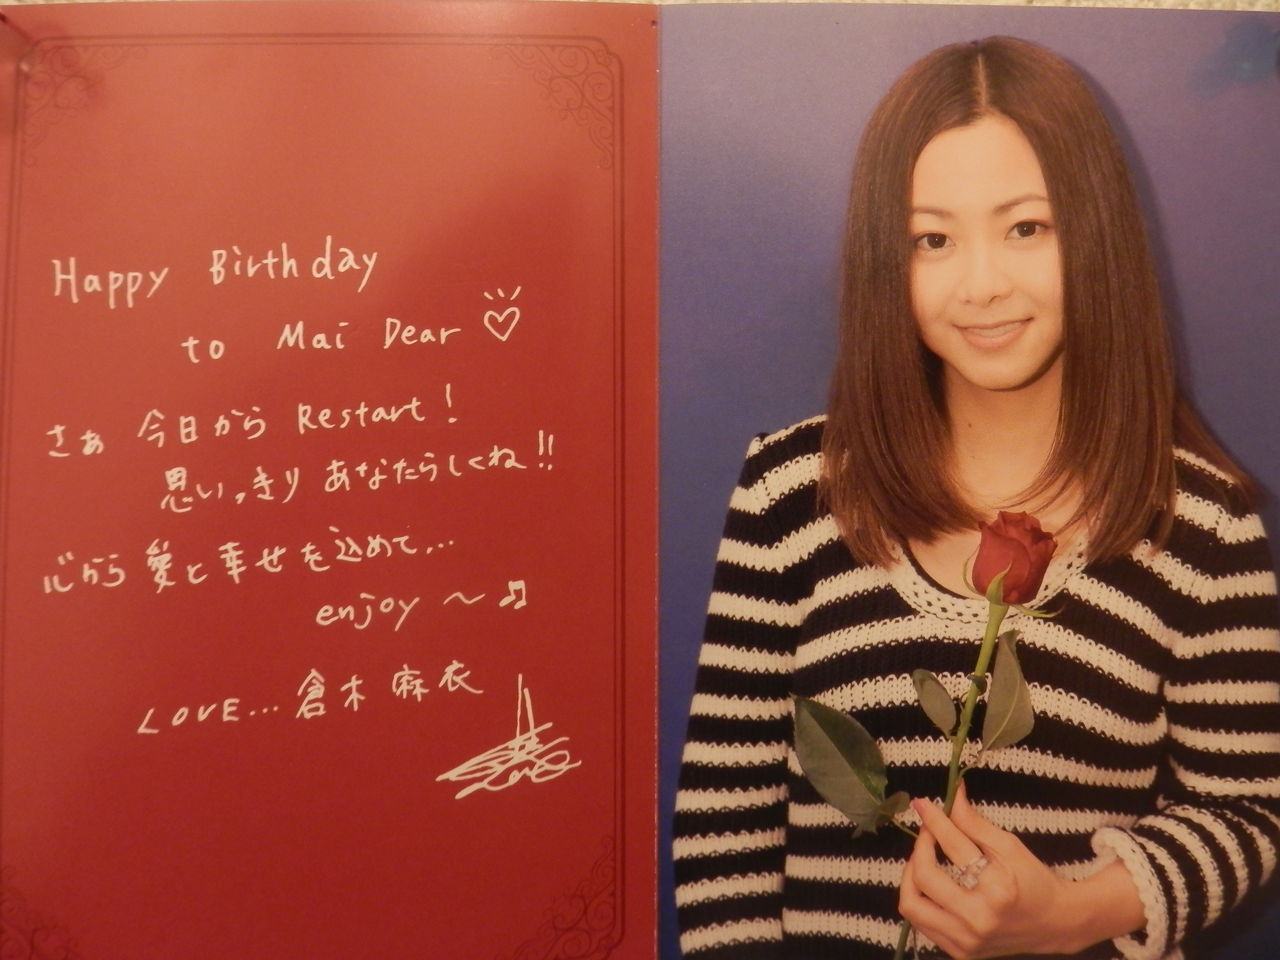 Happy Birthday
to Mai Dear
さぁ 今日から Restart!
思いっきり あなたらしくね!!
心から 愛と幸せを込めて...
enjoy 〜♫
LOVE... 倉木 麻衣